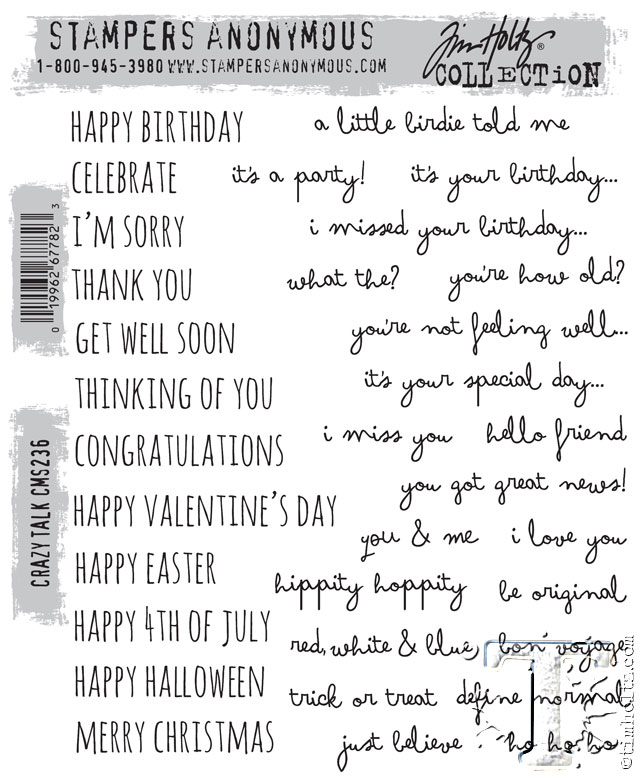 STAMPERS ANONYMOUS
1-800-945-3980 WWW.STAMPERSANONYMOUS.COM
Tim Holtz®
COLLECTiON
HAPPY BIRTHDAY a little birdie told me
CELEBRATE it's a party! it's your birthday...
I'M SORRY i missed your birthday...
THANK YOU what the? you're how old?
GET WELL SOON you're not feeling well...
THINKING OF YOU it's your special day...
CONGRATULATIONS i miss you hello friend
you got great news!
HAPPY VALENTINE'S DAY
you & me i love you
HAPPY EASTER
hippity hoppity be original
HAPPY 4TH OF JULY
red, white & blue bon voyage
HAPPY HALLOWEEN
trick or treat define normal
MERRY CHRISTMAS just believe ho ho ho
0 19962 67782 3
CRAZY TALK CMS236
T
©timholtz.com